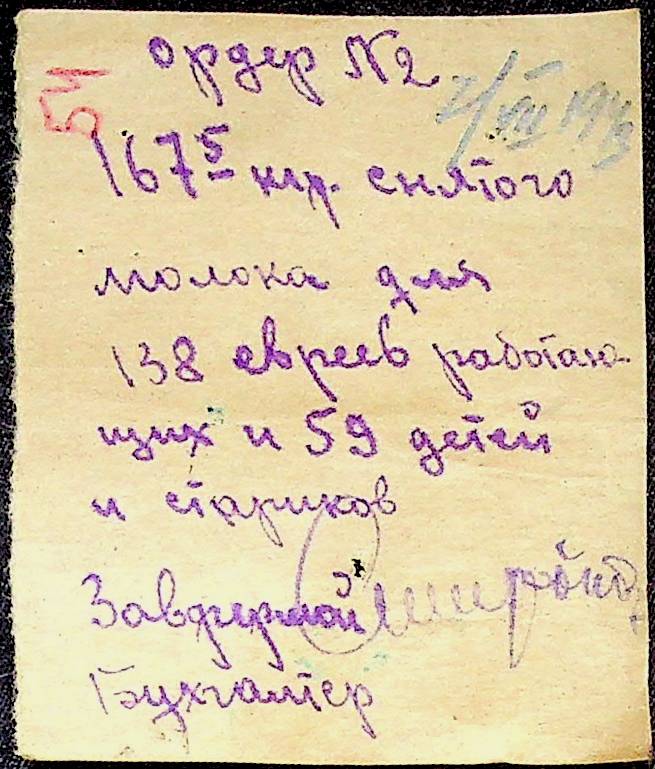 Ордер N2
54
2/VIII 1943
167⁵ кгр. снятого
молока для
138 евреев работаю-
щих и 59 детей
и стариков
Завфермой
Бухгалтер